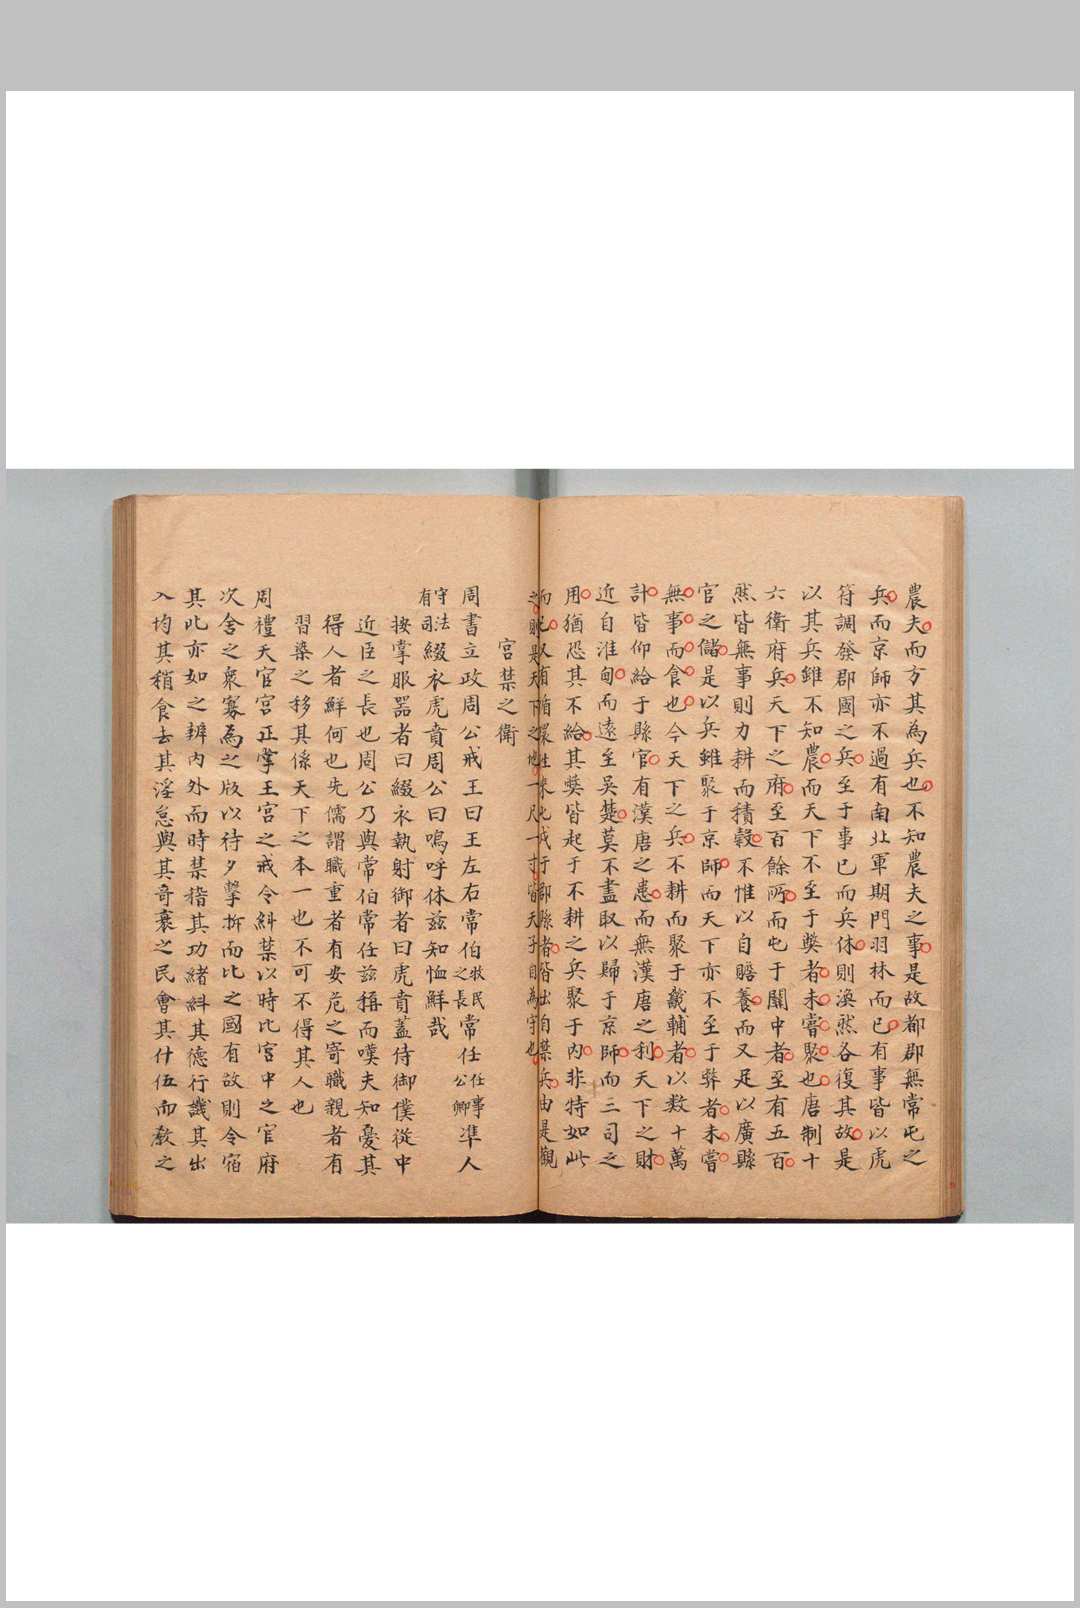 農夫而方其為兵也不知農夫之事是故都郡無常屯之
兵而京師亦不過有南北軍期門羽林而已有事皆以虎
符調發郡國之兵至于事已而兵休則渙然各復其故是
以其兵雖不知農而天下不至于獘者未嘗聚也唐制十
六衛府兵天下之府至百餘所而屯于關中者至有五百
然皆無事則力耕而積糓不惟以自贍養而又足以廣縣
官之儲是以兵雖聚于京師而天下亦不至于弊者未嘗
無事而食也今天下之兵不耕而聚于畿輔者以數十萬
計皆仰給于縣官有漢唐之患而無漢唐之利天下之財
近自淮甸而遠至吳楚莫不盡取以歸于京師而三司之
用猶恐其不給其獘皆起于不耕之兵聚于內非特如此
而已又有循環往來屯戍于郡縣者皆出自禁兵由是觀
之則是天下之地一尺一寸皆天子自為守也
宮禁之衛
周書立政周公戒王曰王左右常伯牧民之長常任任事公卿準人
守法有司綴衣虎賁周公曰嗚呼休兹知恤鮮哉
按掌服器者曰綴衣執射御者曰虎賁蓋侍御僕從中
近臣之長也周公乃與常伯常任兹稱而嘆夫知憂其
得人者鮮何也先儒謂職重者有安危之寄職親者有
習染之移其係天下之本一也不可不得其人也
周禮天官宮正掌王宮之戒令糾禁以時比宮中之官府
次舍之衆寡為之版以待夕擊柝而比之國有故則令宿
其比亦如之辨內外而時禁稽其功緒糾其德行幾其出
入均其稍食去其淫怠與其奇衺之民會其什伍而教之